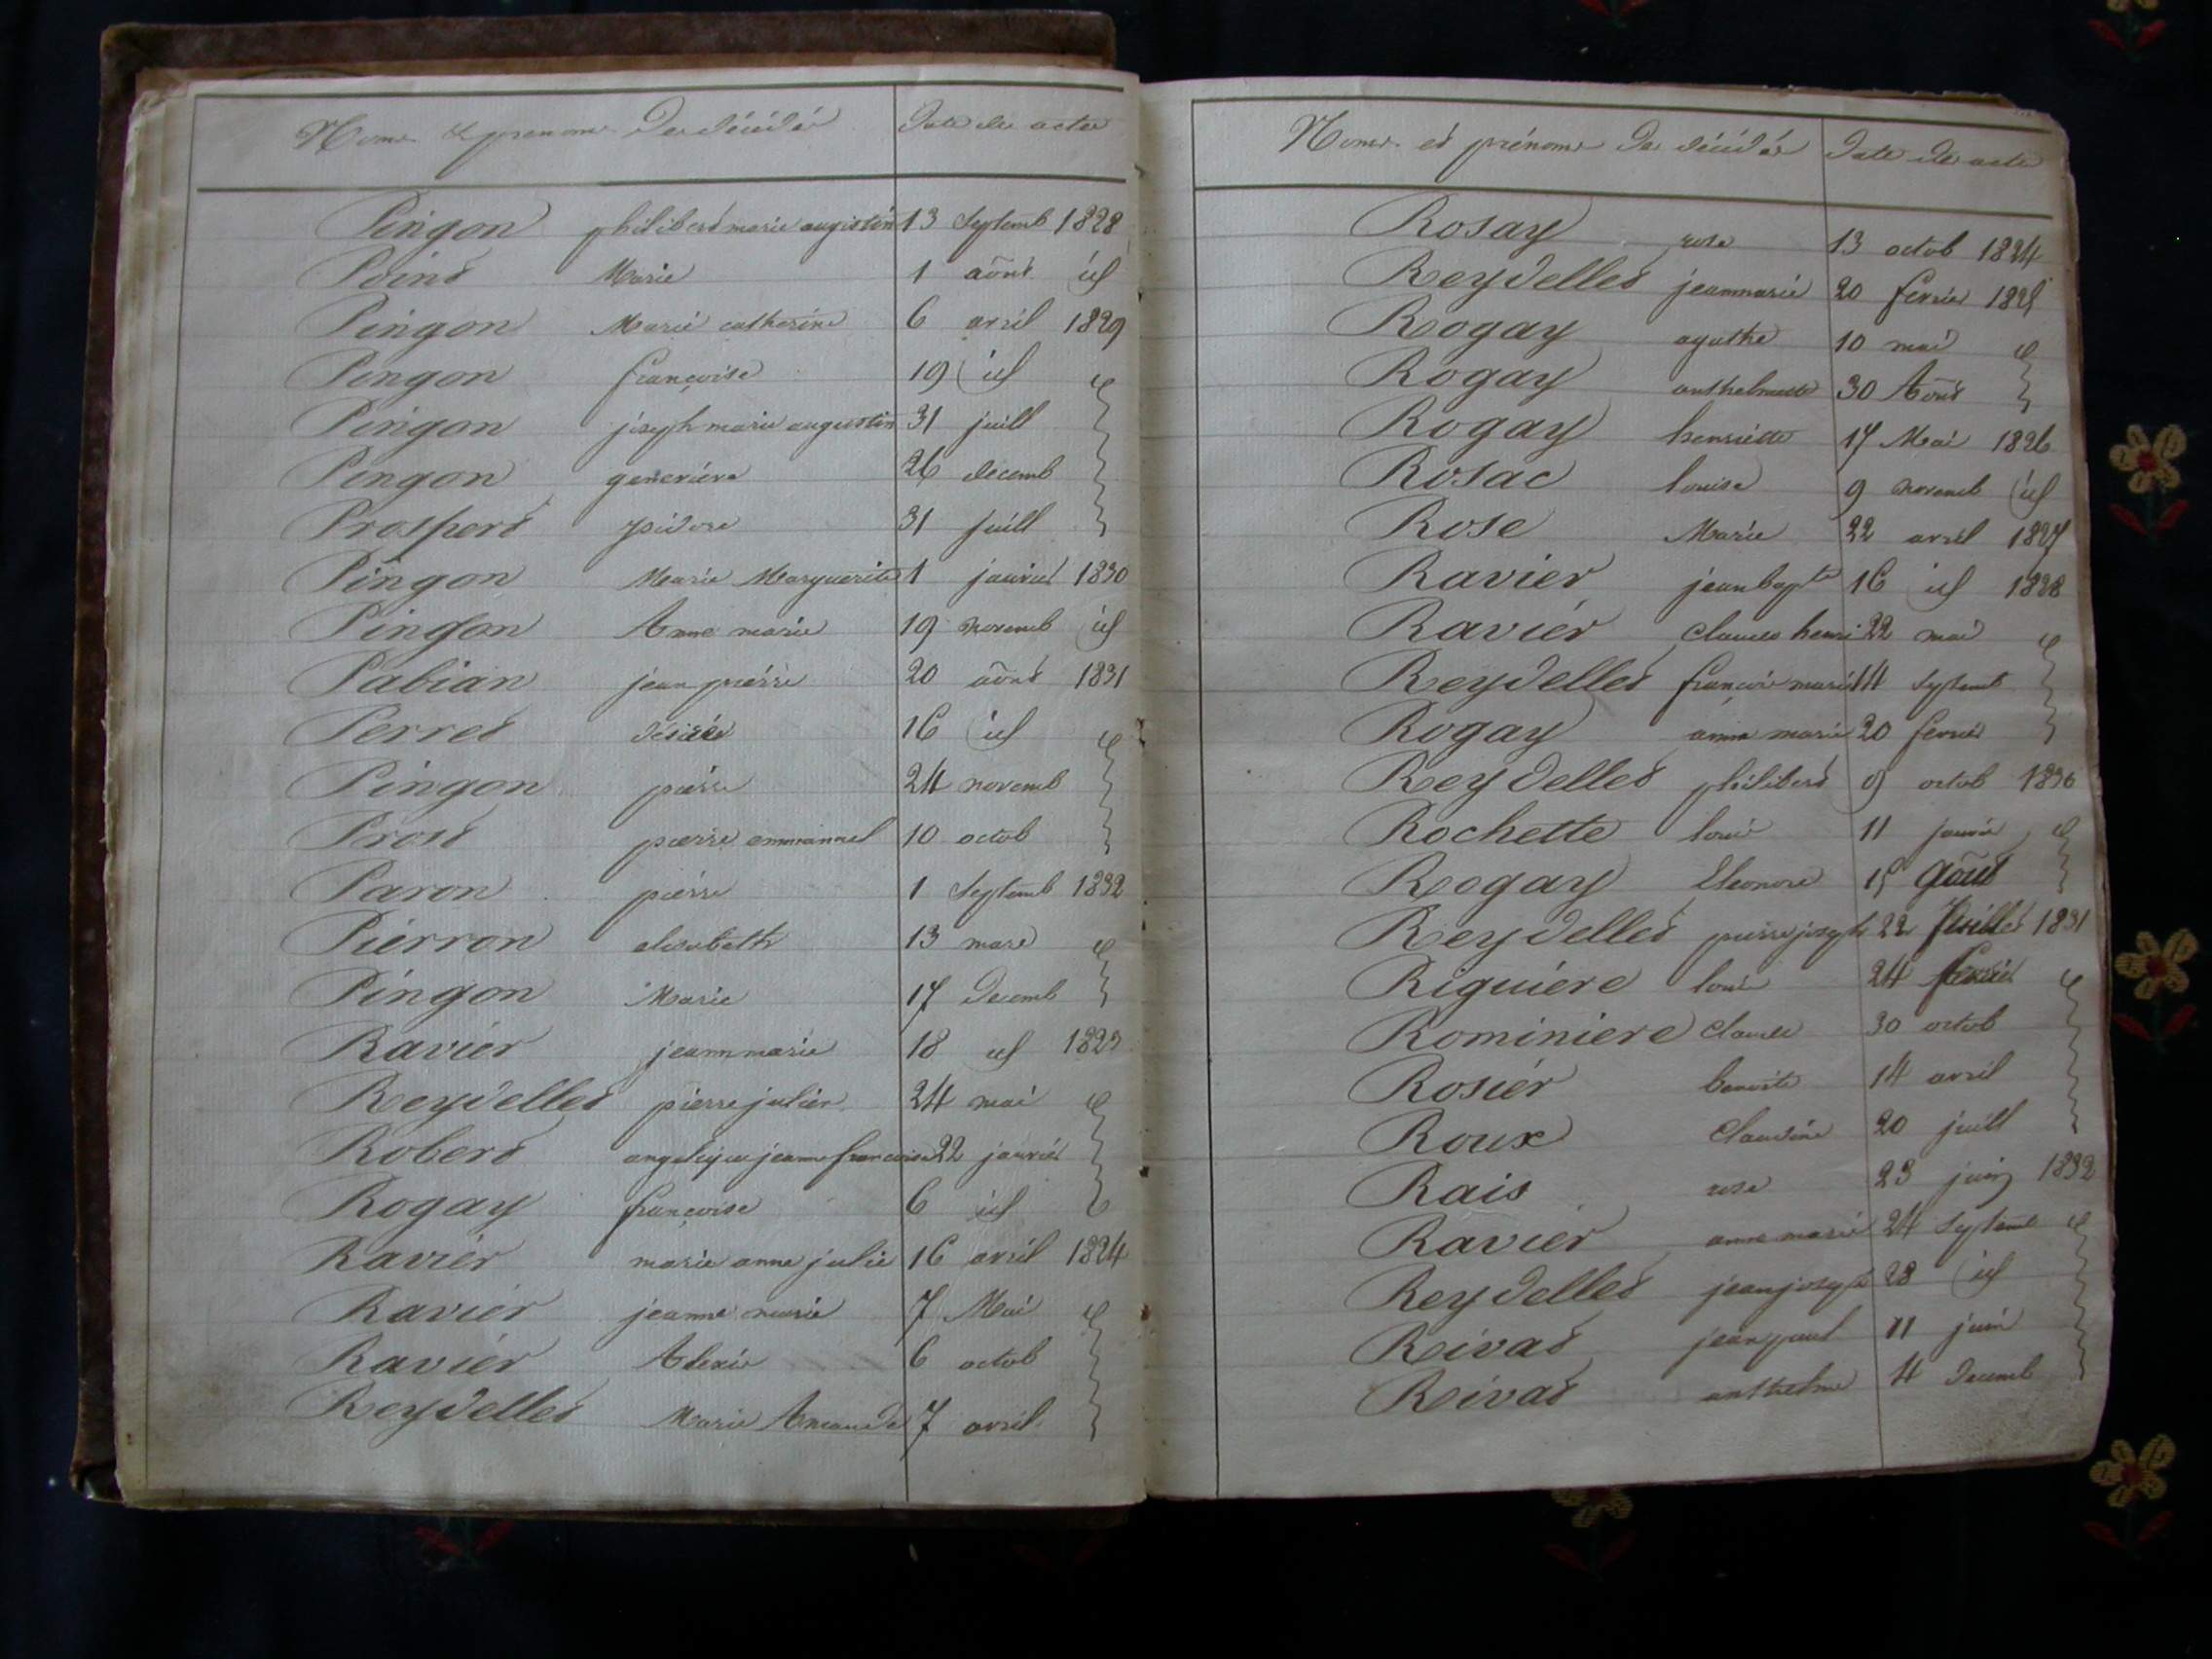 Noms & prenoms des décédés Date des actes
Pingon philibert marie augistin 13 Septemb 1828
Point Marie 1 aout id
Pingon Marie catherine 6 avril 1829
Pingon françoise 19 id
Pingon joseph marie augustin 31 juill
Pingon genevieve 26 decemb
Prospert 31 juill
Pingon Marie Marguerite 1 janvier 1830
Pingon Anne marie 19 novemb id
Pabian jean pierre 20 aout 1831
Perret désiré 16 id
Pingon pierre 24 novemb
Prost pierre emmanuel 10 octob
Paron pierre 1 Septemb 1832
Pierron elisabeth 13 mars
Pingon Marie 17 Decemb
Ravier jeanmarie 18 id 1823
Reydellet pierre julien 24 mai
Robert angelique jeanne francoise 22 janvier
Rogay françoise 6 id
Ravier marie anne julie 16 avril 1824
Ravier jeanne marie 7 Mai
Ravier Alexis 6 octob
Reydellet Marie Amande 7 avril
Noms et prénoms des décédés Date des actes
Rosay rose 13 octob 1824
Reydellet jeanmarie 20 fevrier 1825
Rogay agathe 10 mai
Rogay anthelmette 30 Aout
Rogay henriette 17 Mai 1826
Rosac louise 9 novemb id
Rose Marie 22 avril 1827
Ravier jean bapte 16 id 1828
Ravier Claude henri 22 mai
Reydellet françois marie 14 Septemb
Rogay anne marie 20 fevrier
Reydellet philibert 9 octob 1830
Rochette louis 11 janvie
Rogay Eleonore 15 aout
Reydellet pierre joseph 22 Juillet 1831
Riguiére louis 24 fevrier
Rominiere Claude 30 octob
Rosier benoite 14 avril
Roux Claudine 20 juill
Rais rose 23 juin 1832
Ravier anne marie 24 Septemb
Reydellet jean joseph 28 id
Reivat jean paul 11 juin
Reivat anthelme 4 Decemb